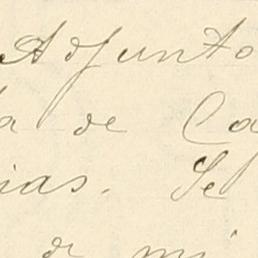 Adjunto
a de Ca
ias. Se
de mi